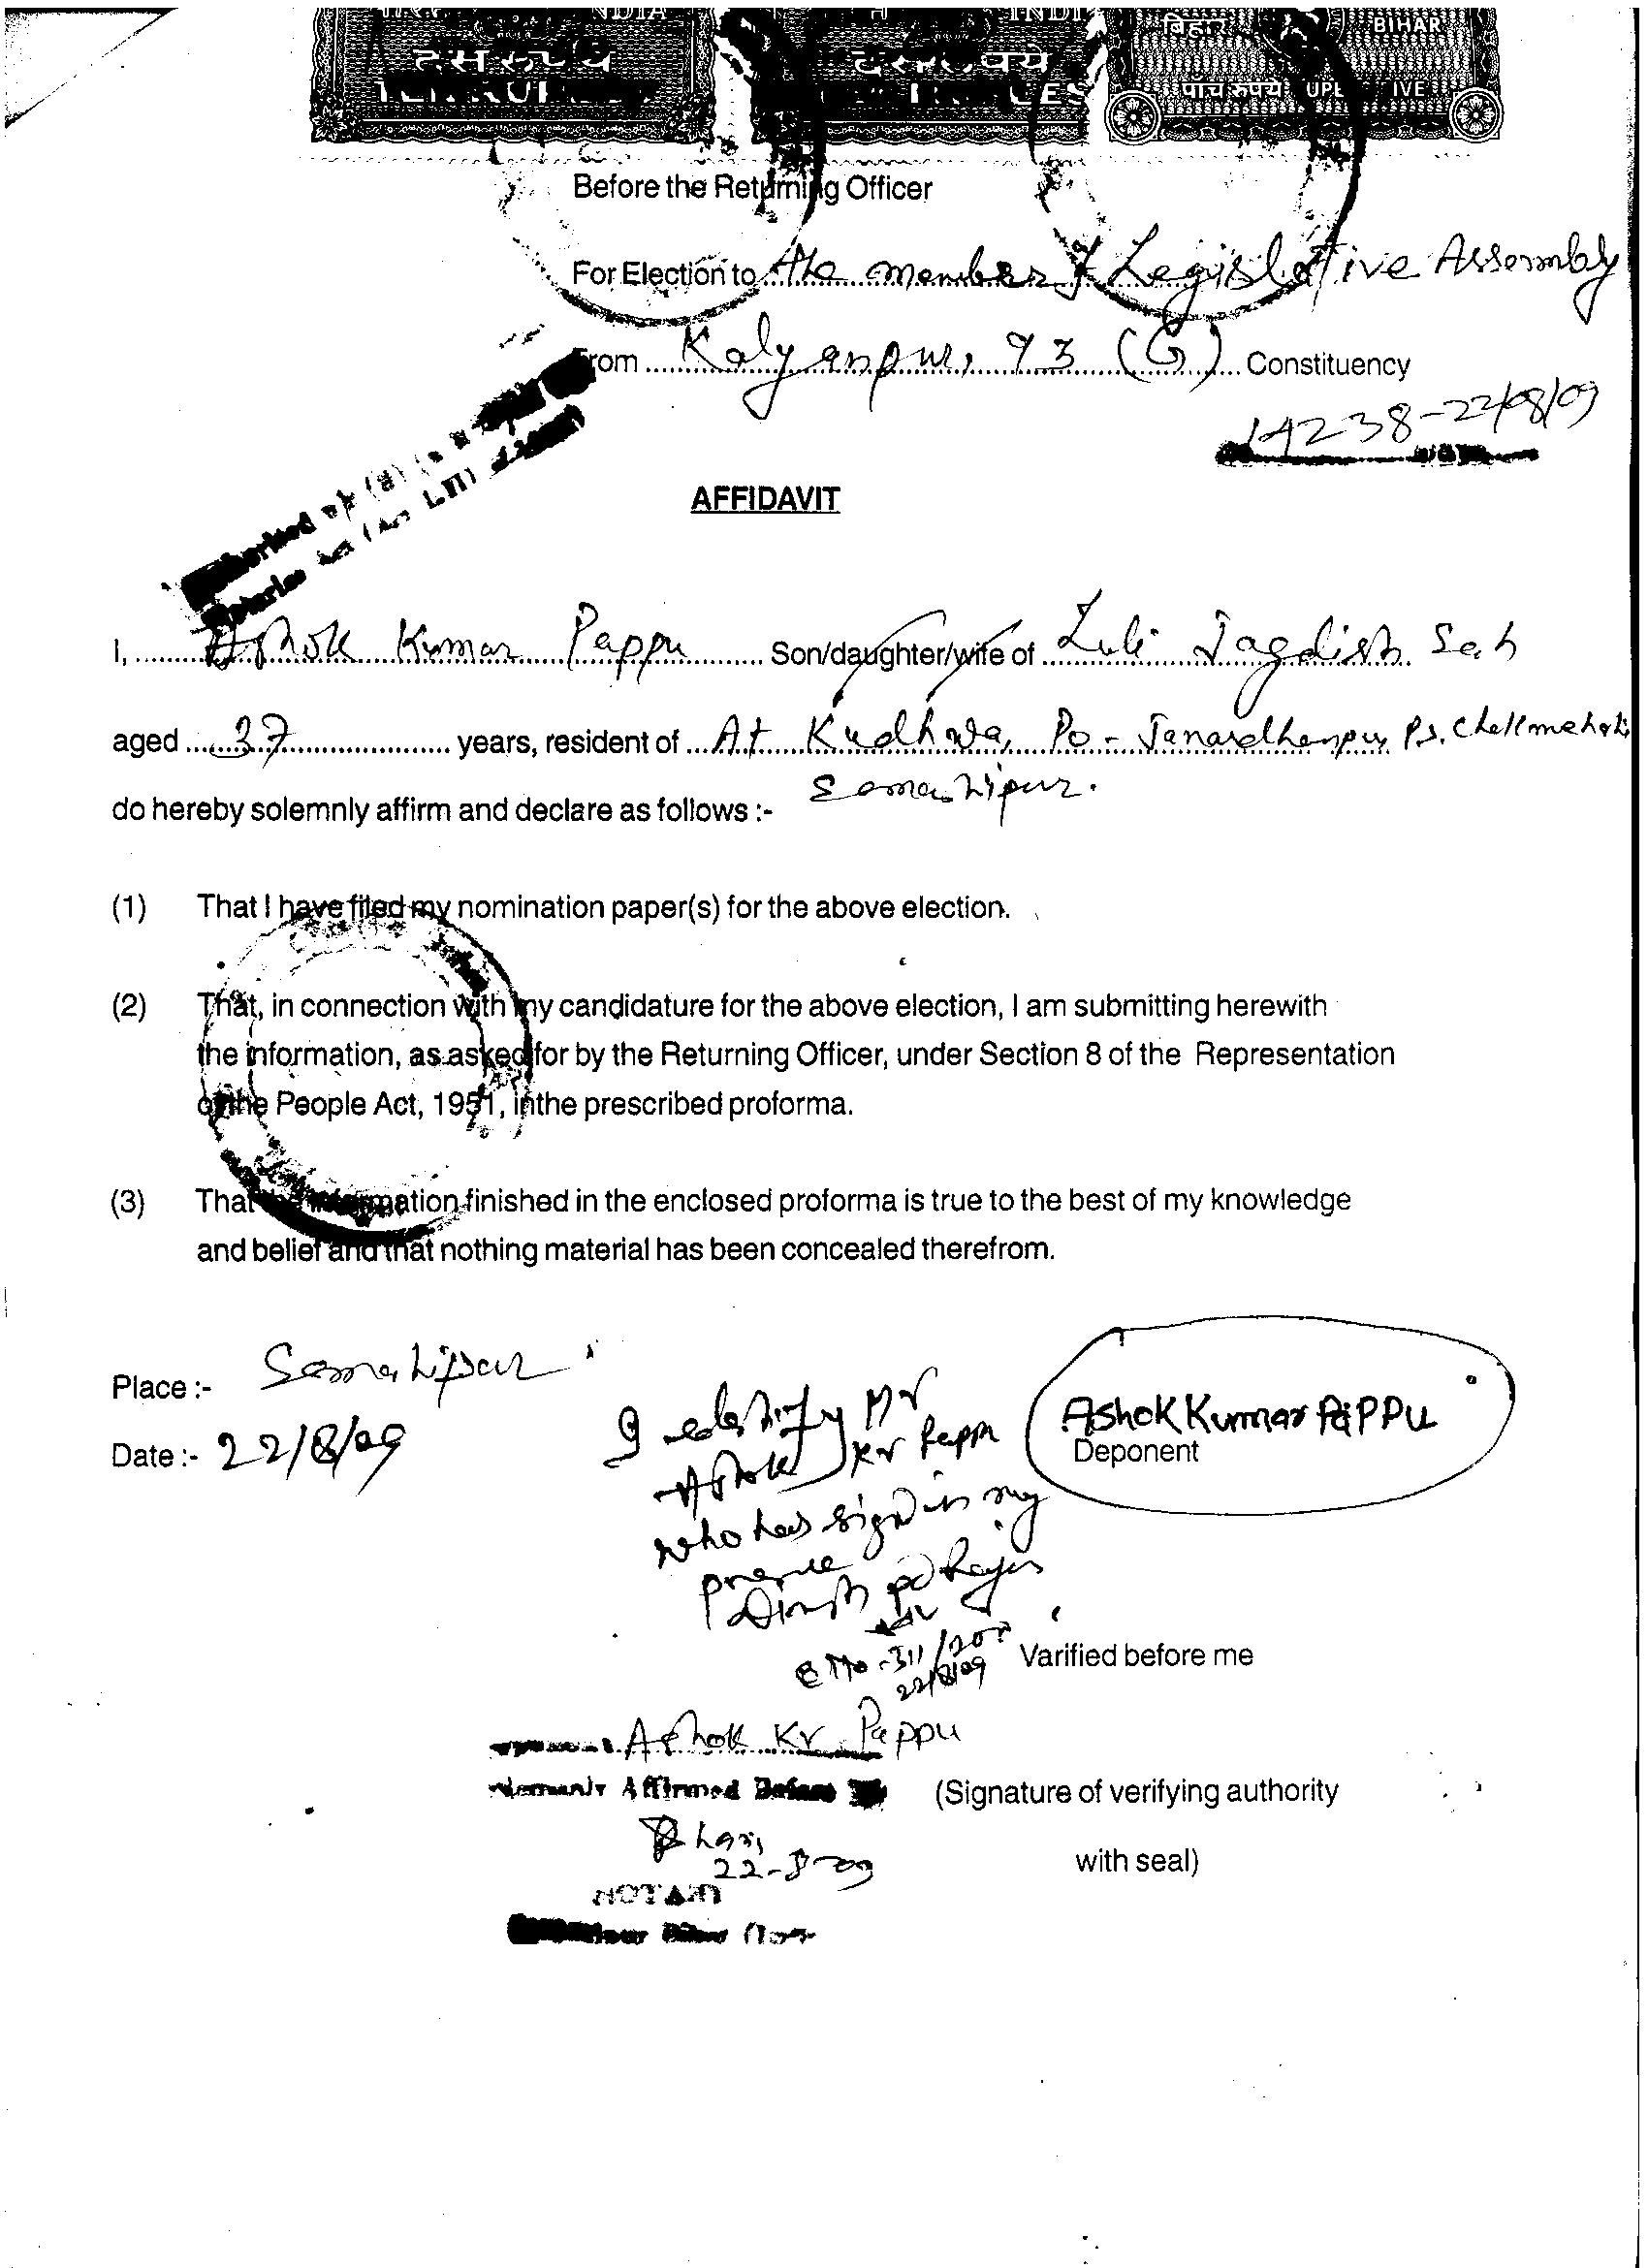 INDIA
INDI
बिहार BIHAR
दस रुपये
पाँच रुपये
Before the Returning Officer
For Election to the member of Legislative Assembly
From Kalyanpur, 93 (G) Constituency
14238-22/08/09
AFFIDAVIT
I, Ashok Kumar Pappu Son/daughter/wife of Jagdish Sah
aged 37 years, resident of At Kudhwa, Po - Janardhanpur, Ps.
Samastipur.
do hereby solemnly affirm and declare as follows :-
(1) That I have filed my nomination paper(s) for the above election.
(2) That, in connection with my candidature for the above election, I am submitting herewith
the information, as asked for by the Returning Officer, under Section 8 of the Representation
of the People Act, 1951, inthe prescribed proforma.
(3) That the information finished in the enclosed proforma is true to the best of my knowledge
and belief and that nothing material has been concealed therefrom.
Place :- Samastipur
Date :- 22/8/09
I identify Mr
Ashok Kr Pappu
who has sign in my
AshoK Kumar PaPPU
Deponent
22/8/09
Varified before me
Ashok Kr Pappu
Affirmed Before
(Signature of verifying authority
22-8-09
with seal)
NOTARY